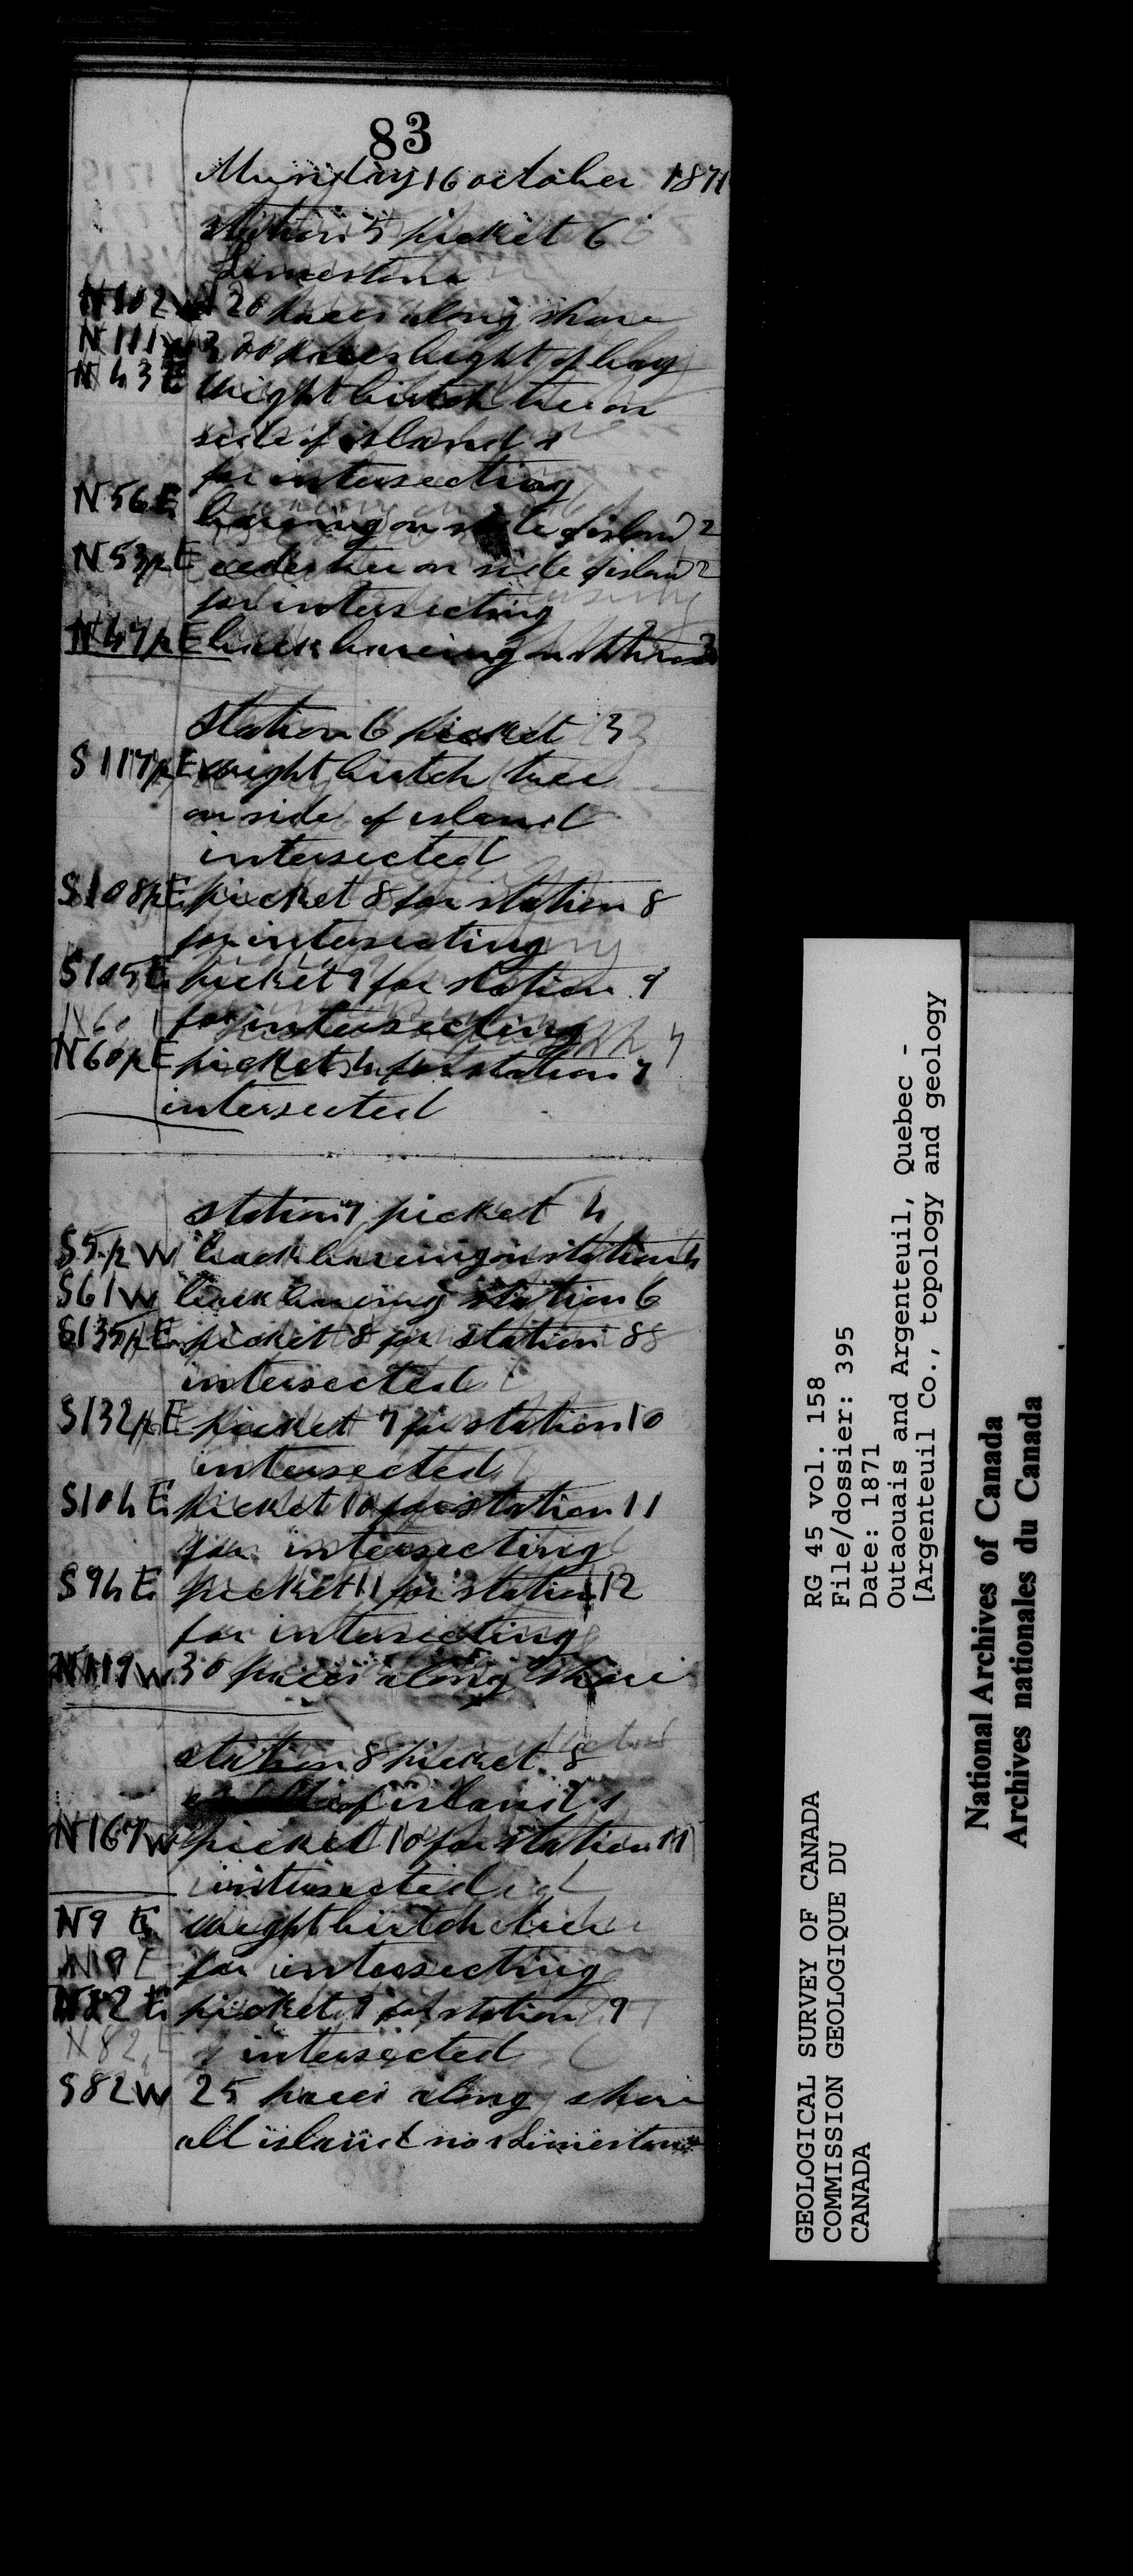 83
Munday 16 october 1871
station 5 picket 6
Limestone
N102W 120 paces along shore
N111W 300 paces hight of bay
N43E whight birtch tree on
side of island 1
for intersecting
N56E bareing on side of island 2
N53½E ceder tree on side of island 2
for intersecting
N47½E back bareing on station 3
station 6 picket 3
S117½E whight birtch tree
on side of island
intersected
S108½E picket 8 for station 8
for intersecting
S105E picket 9 for station 9
for intersecting
N60½E picket 4 for station 7
intersected
station 7 picket 4
S5½W back bareing on station 4
S61W back bareing station 6
S135½E picket 8 for station 8
intersected
S132½E picket 7 for station 10
intersected
S104E picket 10 for station 11
for intersecting
S94E picket 11 for station 12
for intersecting
N119W 30 paces along shore
station 8 picket 8
of island 1
N167W picket 10 for station 11
intersected
N9E whight birtch tree
N9E for intersecting
N82E picket 9 for station 9
N82E intersected
S82W 25 paces along shore
all island no Limestone
RG 45 vol. 158
File/dossier: 395
Date: 1871
Outaouais and Argenteuil, Quebec -
[Argenteuil Co., topology and geology
GEOLOGICAL SURVEY OF CANADA
COMMISSION GEOLOGIQUE DU
CANADA
National Archives of Canada
Archives nationales du Canada